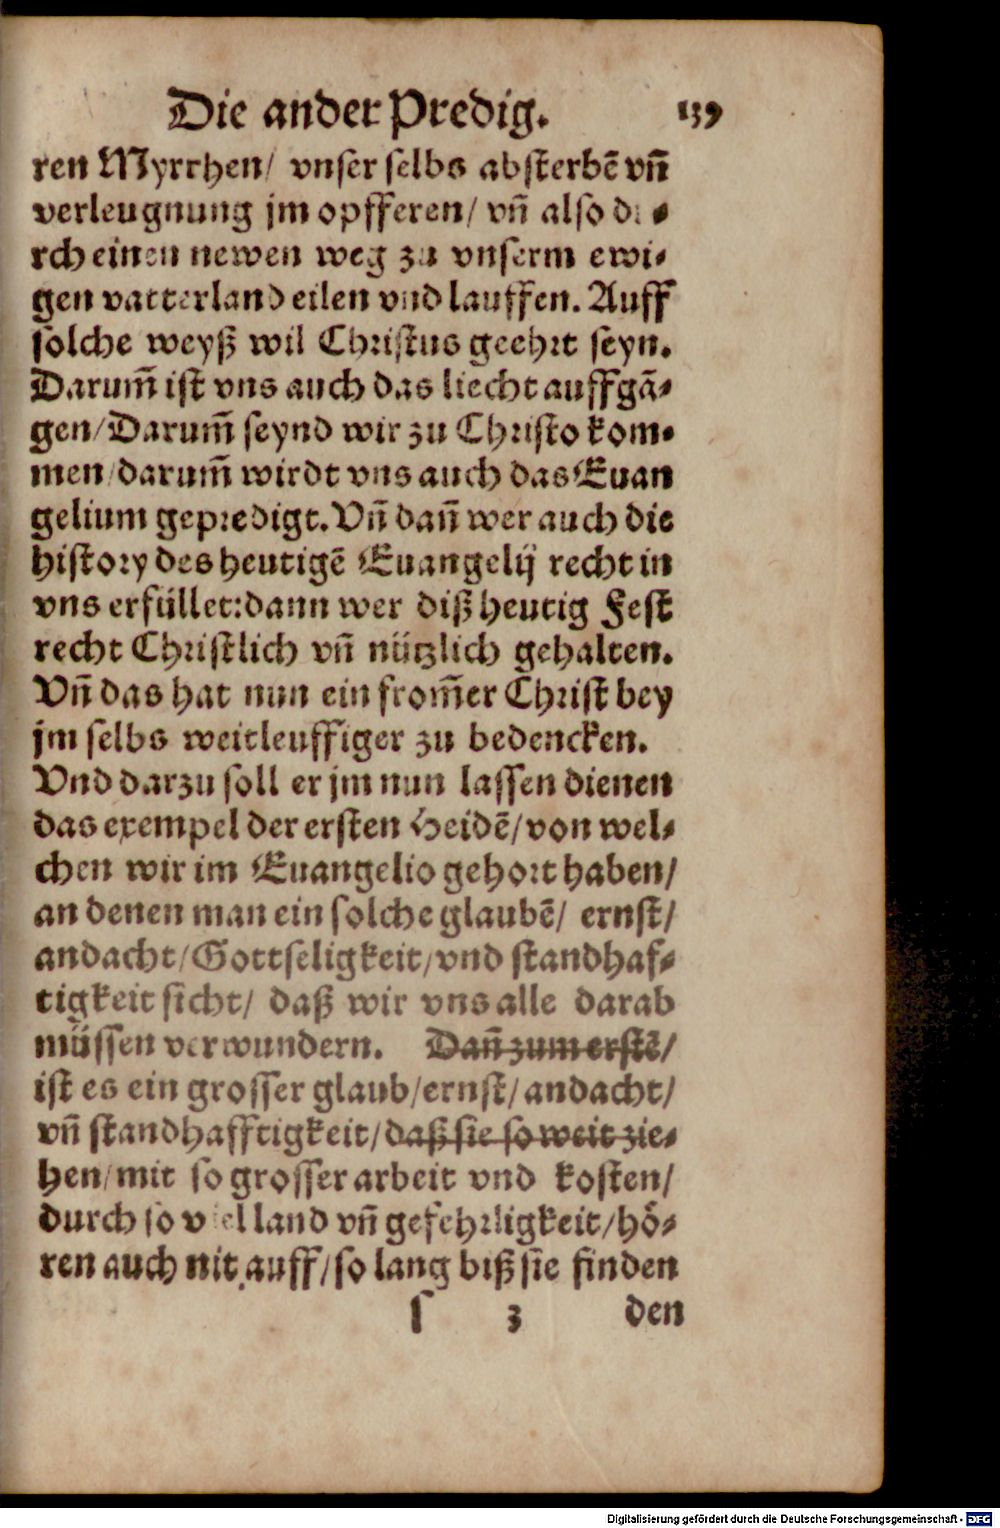 Die ander Predig. 139
ren Myrrhen/ vnser selbs absterbē vñ
verleugnung jm opfferen/ vñ also du⸗
rch einen newen weg zu vnserm ewi⸗
gen vatterland eilen vnd lauffen. Auff
solche weyß wil Christus geehrt seyn.
Darum̃ ist vns auch das liecht auffgā⸗
gen/ Darum̃ seynd wir zu Christo kom⸗
men/ darum̃ wirdt vns auch das Euan
gelium gepredigt. Vñ dañ wer auch die
history des heutigē Euangelij recht in
vns erfüllet: dann wer diß heutig Fest
recht Christlich vñ nützlich gehalten.
Vñ das hat nun ein from̃er Christ bey
jm selbs weitleuffiger zu bedencken.
Vnd darzu soll er jm nun lassen dienen
das exempel der ersten Heidē/ von wel⸗
chen wir im Euangelio gehort haben/
an denen man ein solche glaubē/ ernst/
andacht/ Gottseligkeit/ vnd standhaf⸗
tigkeit sicht/ daß wir vns alle darab
müssen verwundern. Dañ zum erstē/
ist es ein grosser glaub/ ernst/ andacht/
vñ standhafftigkeit/ daß sie so weit zie⸗
hen/ mit so grosser arbeit vnd kosten/
durch so viel land vñ gefehrligkeit/ hö⸗
ren auch nit auff/ so lang biß sie finden
s 3 den
Digitalisierung gefördert durch die Deutsche Forschungsgemeinschaft - DFG